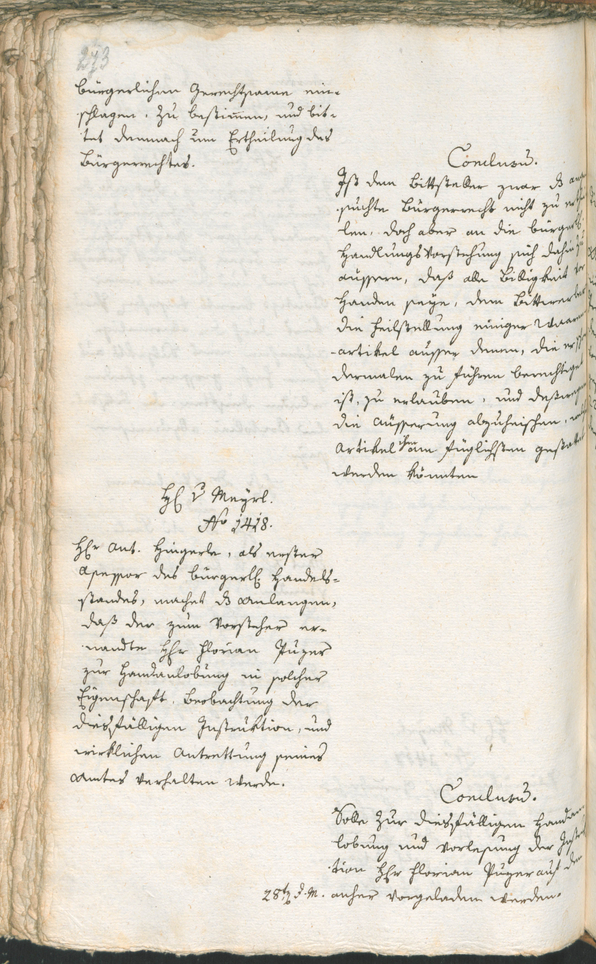 273
bürgerlichen Gerechtsame ein-
schlagen, zu bestimmen, und bit-
tet demnach um Ertheilung des
Bürgerrechtes.
Conclusu͠.
Ist dem Bittsteller zwar d͠s
suchte Bürgerrecht nicht zu
len, doch aber an die bürgerl
Handlungsvorstehung sich dahin zu
äussern, daß alle Billigkeit
Handen seye, dem Bittwerber
die Feilstellung einiger Waaren
-artikel ausser denen, die er
dermalen zu führen berechtiget
ist, zu erlauben, und deswegen
die Äusserung abzuheischen,
Artikel ihm am füglichsten gestattet
werden könnten
H. v Mayrl.
No 1418.
Hr Ant. Hingerle, als erster
Assessor des bürgerl Handels-
standes, machet d͠s Anlangen,
daß der zum Vorsteher er-
nandte Hr Florian Puzer
zur Handanlobung in solcher
Eigenschaft, Beobachtung der
diesfälligen Instruktion, und
wirklichen Antrettung seines
Amtes verhalten werde.
Conclusu͠.
Solle zur diesfälligen Handan-
lobung und Vorlesung der Instruk-
tion Hr Florian Puzer auf den
28t d. M. anher vorgeladen werden.